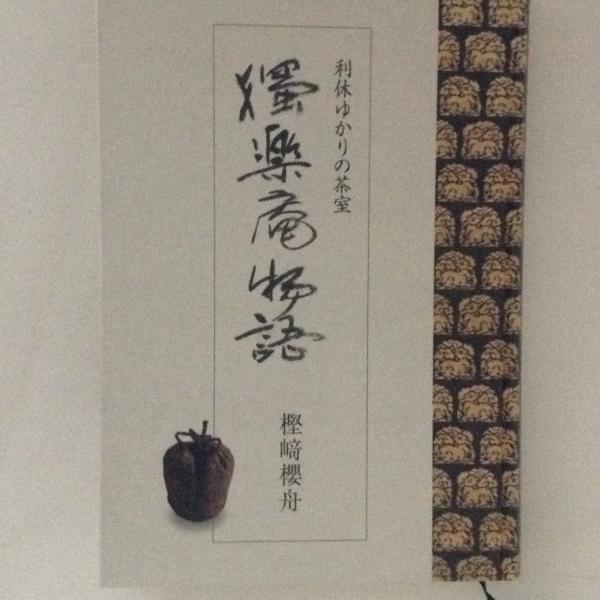 利休ゆかりの茶室
獨楽庵物語
樫﨑櫻舟